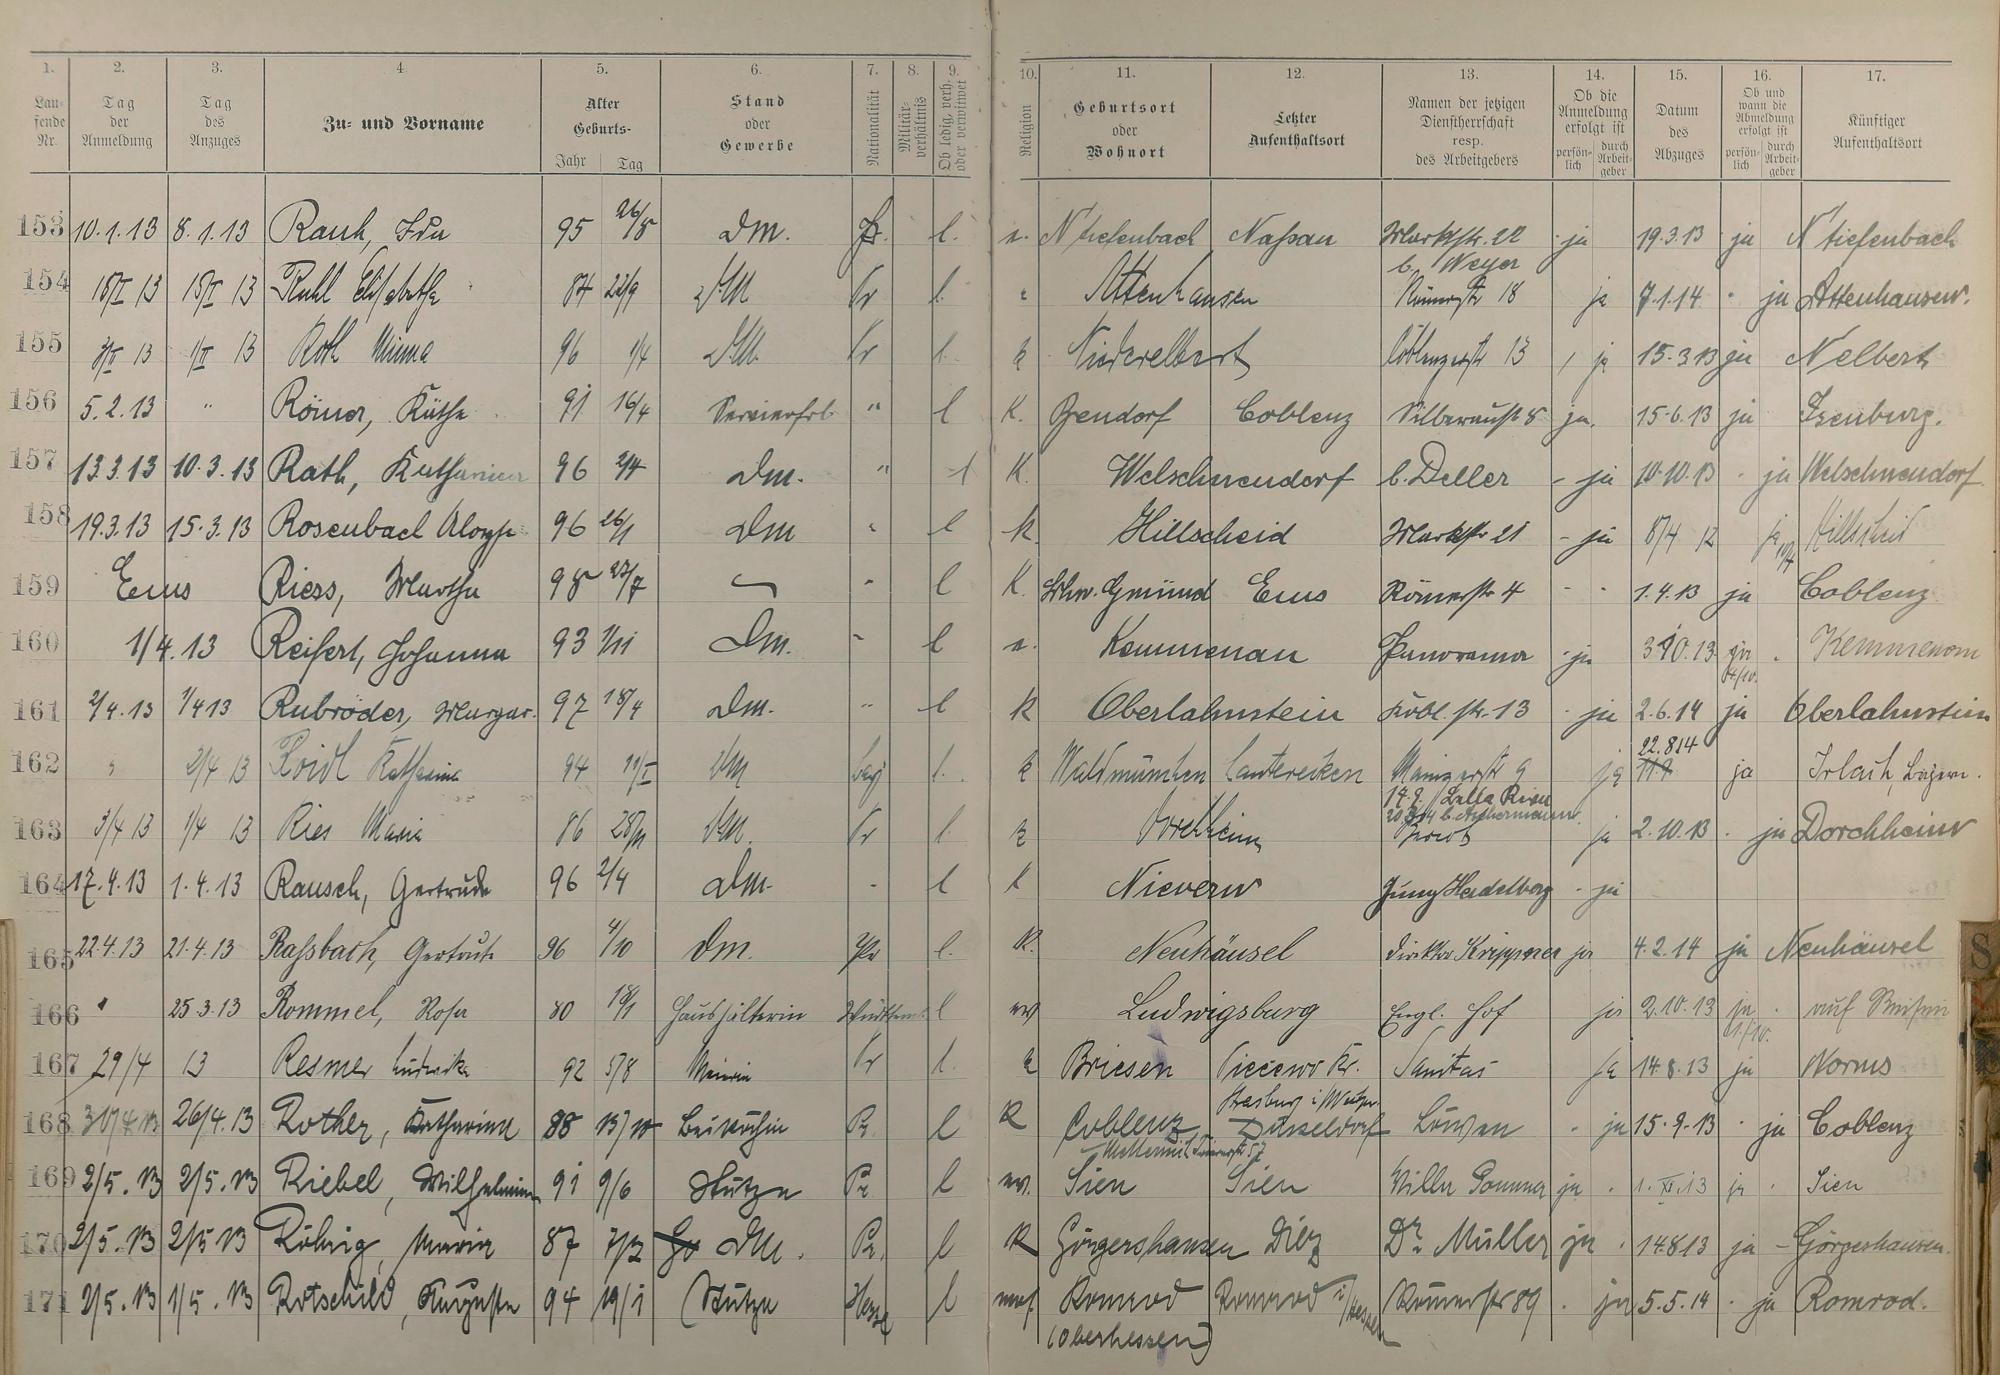 1. 2. 3. 4 5. 6. 7. 8. 9. 10. 11. 12. 13. 14. 15. 16. 17.
Laufende Nr. Tag der Anmeldung Tag des Anzuges Zu- und Vorname Alter Geburts- Jahr Tag Stand oder Gewerbe Nationalität Militärverhältnis Ob ledig, verh. oder verwitwet Religion Geburtsort oder Wohnort Letzter Aufenthaltsort Namen der jetzigen Dienstherrschaft resp. des Arbeitgebers Ob die Anmeldung erfolgt ist persönlich durch Arbeitgeber Datum des Abzuges Ob und wann die Abmeldung erfolgt ist persönlich durch Arbeitgeber Künftiger Aufenthaltsort
153 10.1.13 8.1.13 Rauh, Ida 95 26/5 Dm. Pr. l. N'tiefenbach Naßau Marktstr. 22 ja 19.3.13 ja N'tiefenbach
b. Weyer
154 Ruhl Elisabetha 84 22/9 DM Pr l. Attenhausen Römerstr 18 ja 7.1.14 ja Attenhausen.
155 13 1/II 13 Roth Minna 96 1/4 DM. Pr l. k Niederelbert Coblenzerstr 13 ja 15.3.13 ja N'elbert
156 5.2.13 " Römer, Käthe 91 16/4 Servierfrl. " l K. Bendorf Coblenz Silberaustr 8 ja. 15.6.13 ja Isenburg.
157 13.3.13 10.3.13 Rath, Katharina 96 2/4 Dm. " l K. Welschneudorf b. Deller - ja 10.10.13 ja Welschneudorf
158 19.3.13 15.3.13 Rosenbach 96 26/1 Dm " l k. Hillscheid Marktstr 21 - ja 8/4 12 ja Hillscheid
159 Ems Riess, Martha 98 23/7 " l K. Schw. Gmünd Ems Römerstr 4 1.4.13 ja Coblenz
160 1/4.13 Reifert, Johanna 93 1/11 Dm. " l Kemmenau Panorama ja 13 ja Kemmenau
161 2/4.13 1/4 13 Rubröder, Margar. 97 18/4 Dm. " l k Oberlahnstein Kobl. str. 13 ja 2.6.14 ja Oberlahnstein
22.8.14
162 " 2/4 13 Roidl Katharina 94 DM bay l. k Waldmünchen Lauterecken Mainzerstr 9 ja ja Irlach, Bayern.
163 3/4 13 1/4 13 Ries Maria 86 DM. Pr l. k Dorchheim ja 2.10.13 ja Dorchheim
164 17.4.13 1.4.13 Rausch, Gertrude 96 2/4 Dm. l k Nievern Jung Heidelberg - ja
165 22.4.13 21.4.13 Raßbach, Gertrude 96 4/10 Dm. Pr l. K. Neuhäusel Direktor Krippner ja 4.2.14 ja Neuhäusel
166 " 25.3.13 Rommel, Rosa 80 18/1 Haushälterin Württemb l ev Ludwigsburg Engl. Hof ja 2.10.13 ja auf Reisen
167 29/4 13 Resmer Ludwika 92 5/8 Pr l. k Briesen Kr. Sanitas ja 14.8.13 ja Worms
Strasburg i/Westpr.
168 26/4.13 Rother, Katharina 88 13/10 Beiköchin Pr. l K Coblenz Düsseldorf Löwen ja 15.9.13 ja Coblenz
169 2/5.13 2/5.13 Riebel, Wilhelmine 91 9/6 Stütze Pr l ev. Sien Sien Villa ja 1.XI.13 ja Sien
170 2/5.13 2/5 13 Röhrig, Maria 87 Dm. Pr. l K Görgershausen Diez Dr. Müller ja 14.8.13 ja - Görgeshausen.
171 2/5.13 1/5.13 Rotschild, Auguste 94 19/1 Stütze Hesse l mos. Romrod Romrod i/Hessen Römerstr 89 ja 5.5.14 ja Romrod.
(Oberhessen)
S